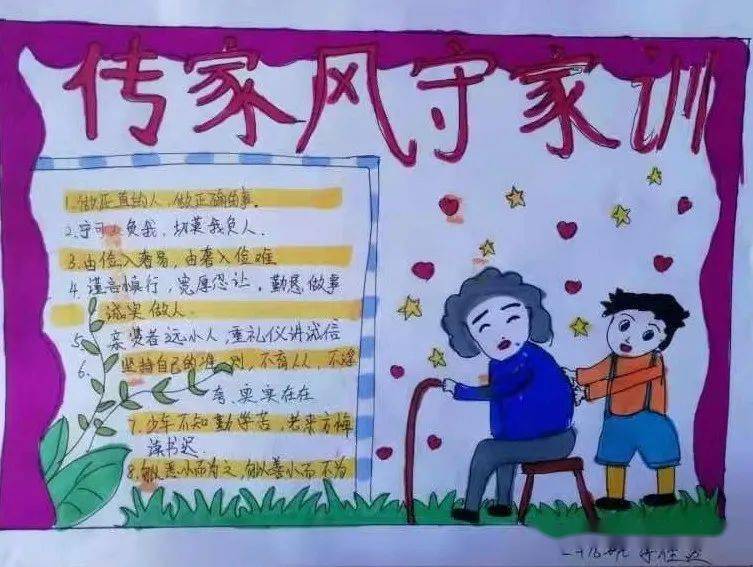 传家风守家训
1.做正直的人,做正确的事。
2.宁可人负我,切莫我负人.
3.由俭入奢易,由奢入俭难
4.谨言慎行,宽厚忍让,勤恳做事
诚实做人.
5. 亲贤者远小人,重礼仪讲诚信
6. 坚持自己的准则,不盲从,不逢
实实在在
7.少年不知勤学苦,老来方悔
读书迟.
8.勿以恶小而为之,勿以善小而不为